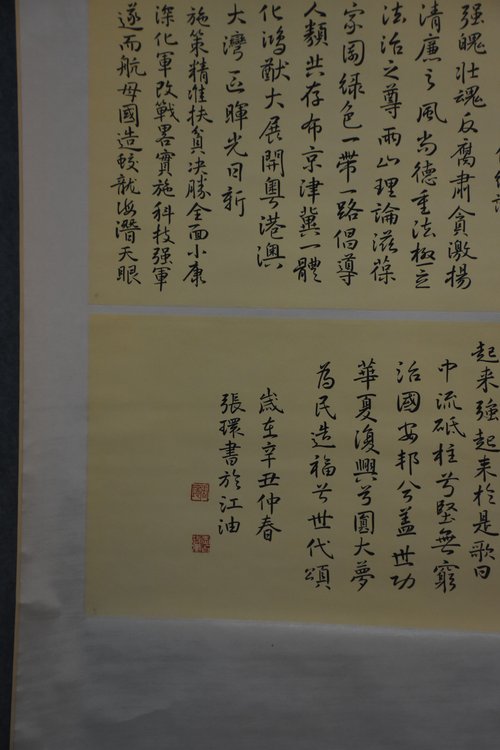 强魄壮魂反腐肃貪激揚
清廉之風尚德重法極立
法治之尊兩山理論滋葆
家園绿色一带一路倡導
人類共存布京津冀一體
化鸿猷大展開粤港澳
大灣區暉光日新
施策精准扶貧决勝全面小康
深化軍改戰畧實施科技强軍
遂而航母國造蛟龍海潛天眼
起来强起来於是歌曰
中流砥柱兮堅無窮
治國安邦兮蓋世功
華夏復興兮圓大夢
為民造福兮世代頌
歲在辛丑仲春
張環書於江油